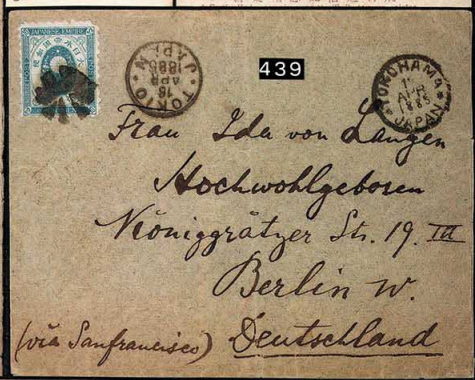 JAPANESE EMPIRE
439
TOKIO
16
APR
1885
JAPAN
YOKOHAMA
APR
1885
JAPAN
Frau Ida von Langen
Hochwohlgeboren
Königgrätzer Str. 19. III
Berlin W.
(via Sanfrancisco) Deutschland